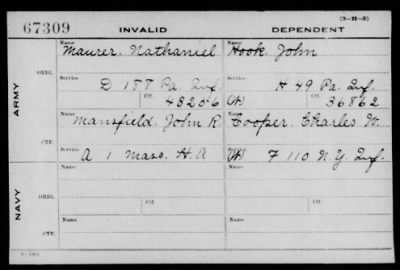 (3-H-5)
67309 INVALID DEPENDENT
Name Name
Maurer. Nathaniel Hook. John
ORIG.
Service Service
D 187 Pa. Inf. H 49 Pa. Inf.
Ctf. Ctf.
48206 36862
ARMY
Name Name
Mansfield. John R. Cooper. Charles W.
CTF.
Service
A 1 Mass. H.A F 110 N.Y. Inf.
Name Name
ORIG.
Service Service
Ctf. Ctf.
NAVY
Name Name
CTF.